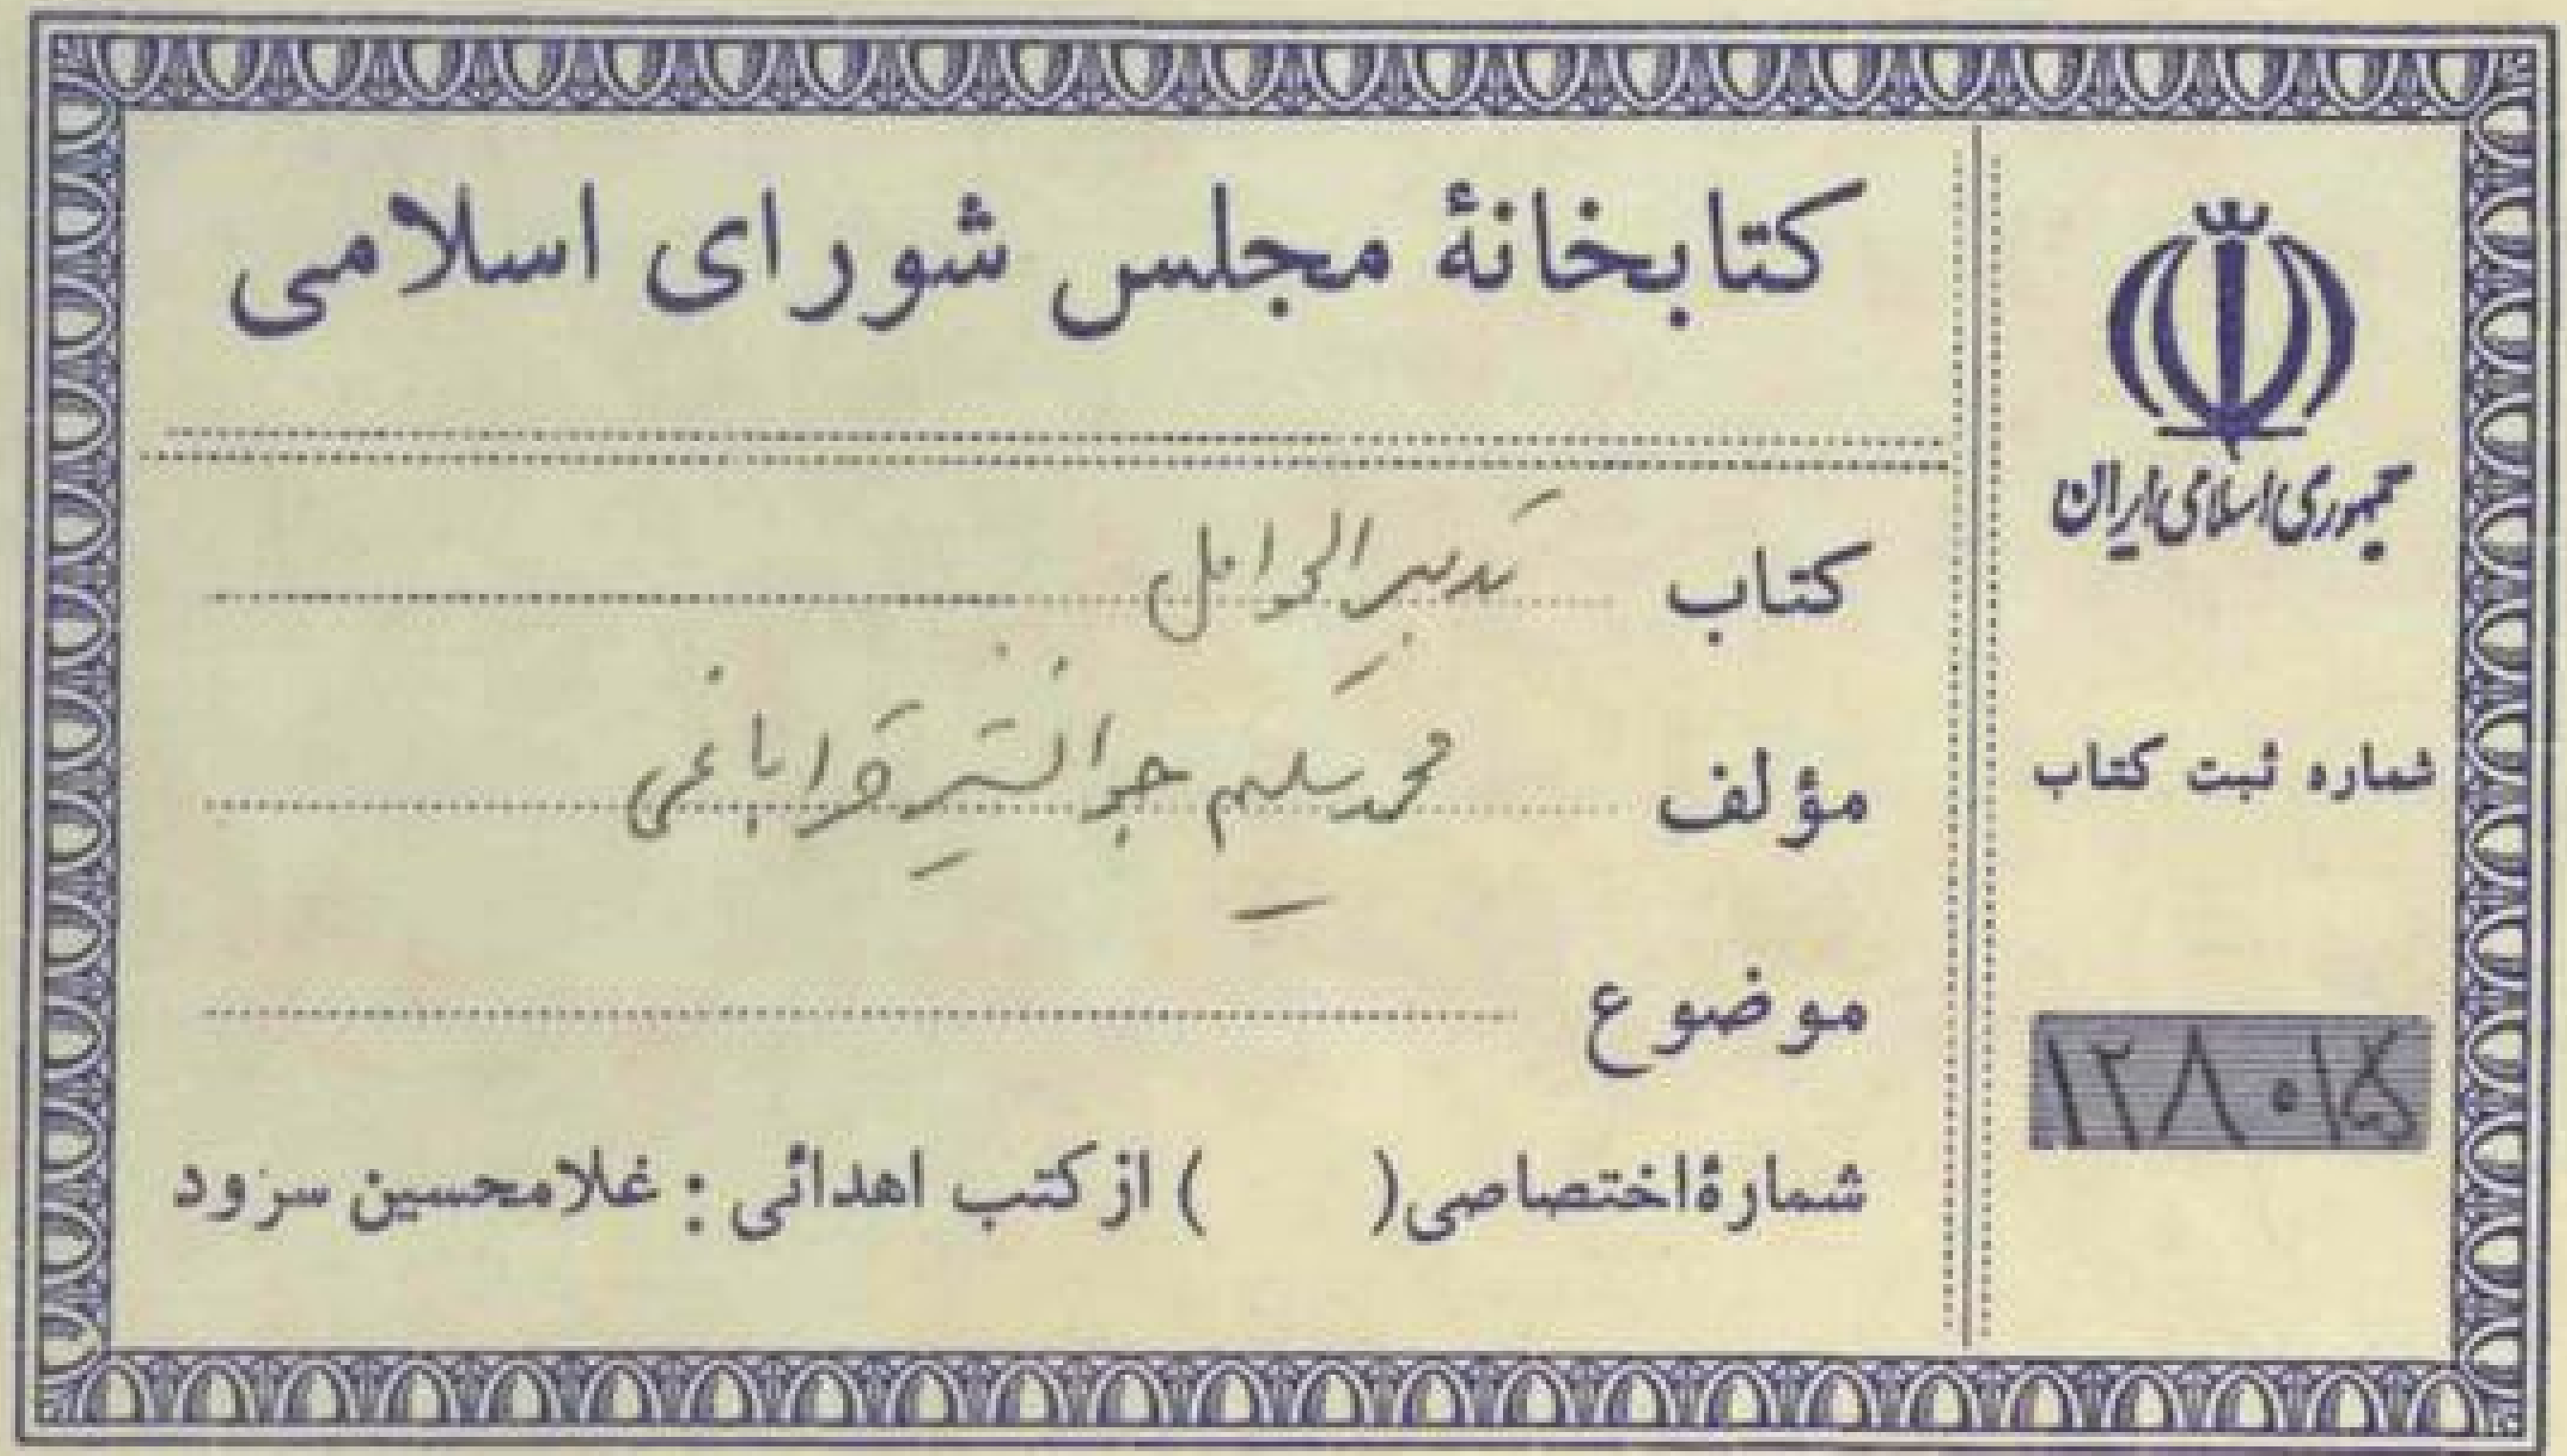 جمهوری اسلامی ایران
شماره ثبت کتاب
کتابخانهٔ مجلس شورای اسلامی
کتاب تدبیر الحوامل
مؤلف محمد سلیم جوانشیر قراباغی
موضوع
شمارهٔ اختصاصی ( ) از کتب اهدائی : غلامحسین سرود